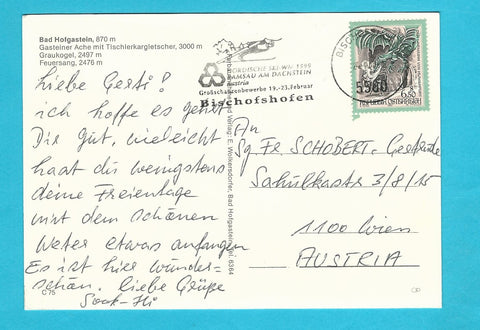 Bad Hofgastein, 870 m
Gasteiner Ache mit Tischlerkargletscher, 3000 m
Graukogel, 2497 m
Feuersang, 2476 m
Liebe Gerti!
ich hoffe es geht
Dir gut, vieleicht
hast du wenigstens
deine Freientage
mit dem schönen
Weter etwas anfangen
Es ist hier wunder-
schön. Liebe Grüße
C 75
NORDISCHE SKI-WM 1999
RAMSAU AM DACHSTEIN
Austria
Großschanzenbewerbe 19.-23. Februar
Bischofshofen
Verlag: E. Wolkersdorfer, Bad Hofgastein, Tel. 8364
5500
6.50
REPUBLIK ÖSTERREICH
An
Fr SCHOBERT Gertrude
3/8/15
1100 Wien
AUSTRIA